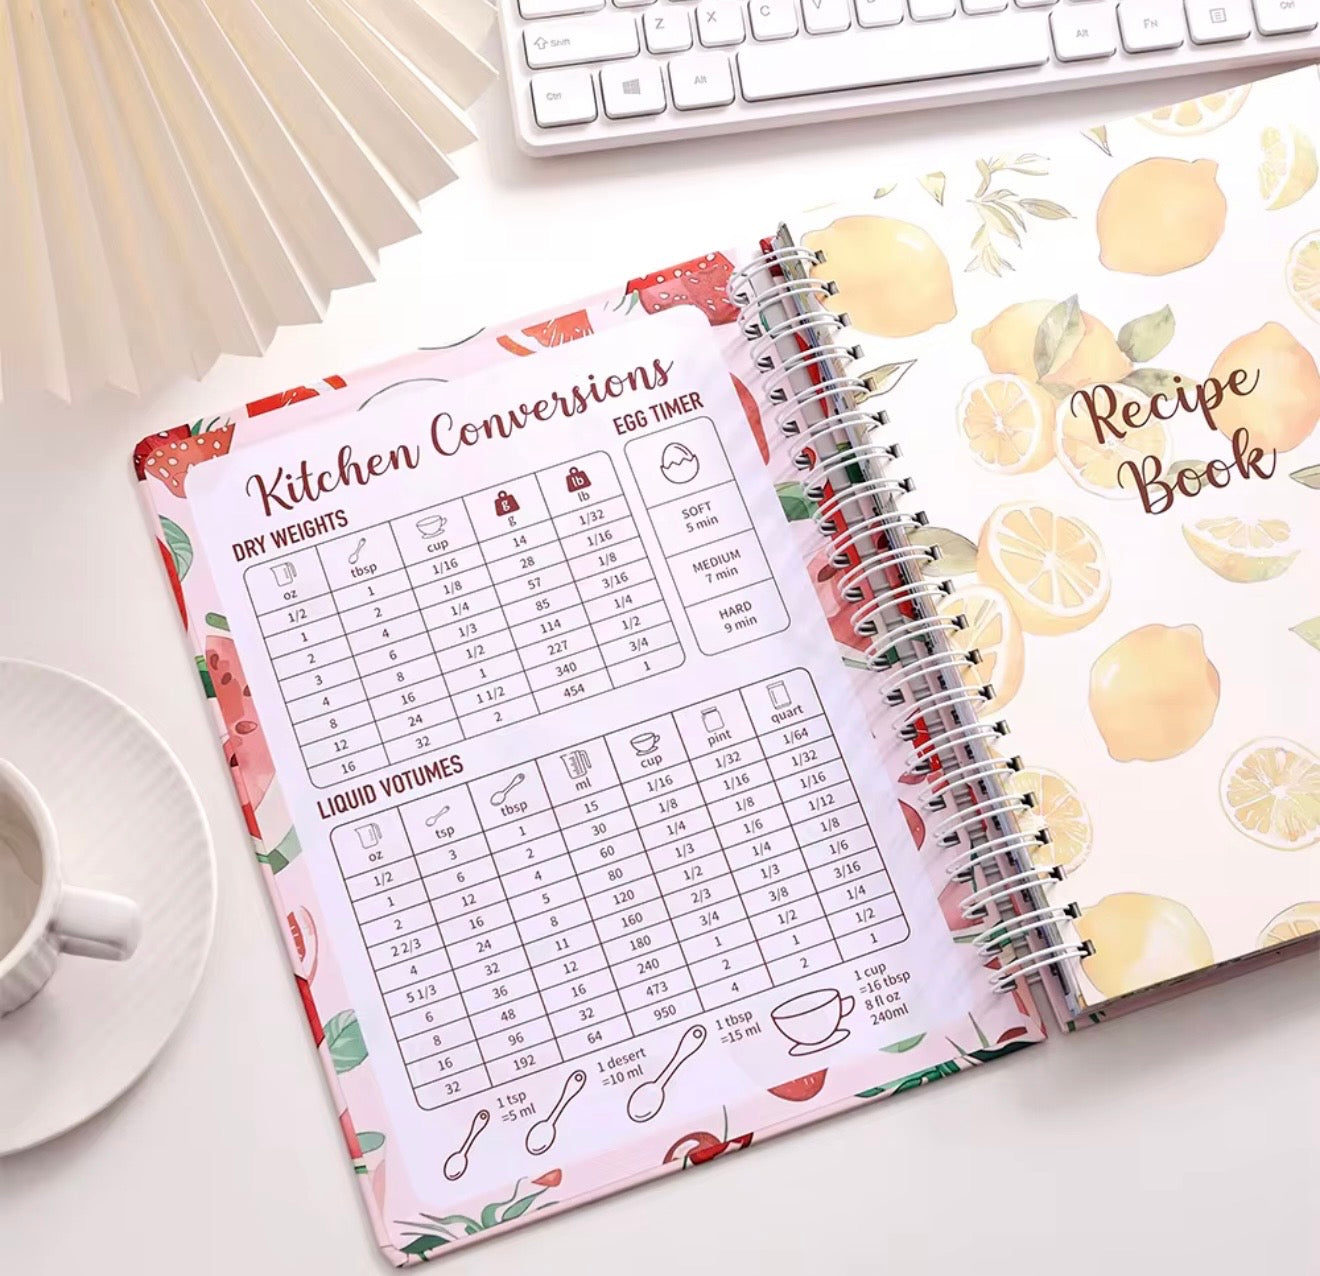 Z X C V
Shift
Ctrl Alt Alt FN Ctrl
Kitchen Conversions
DRY WEIGHTS
oz tbsp cup g g lb lb
1/2 1 1/16 14 1/32
1 2 1/8 28 1/16
2 4 1/4 57 1/8
3 6 1/3 85 3/16
4 8 1/2 114 1/4
8 16 1 227 1/2
12 24 1 1/2 340 3/4
16 32 2 454 1
EGG TIMER
SOFT
5 min
MEDIUM
7 min
HARD
9 min
LIQUID VOTUMES
oz tsp tbsp ml cup pint quart
1/2 3 1 15 1/16 1/32 1/64
1 6 2 30 1/8 1/16 1/32
2 12 4 60 1/4 1/8 1/16
2 2/3 16 5 80 1/3 1/6 1/12
4 24 8 120 1/2 1/4 1/8
5 1/3 32 11 160 2/3 1/3 1/6
6 36 12 180 3/4 3/8 3/16
8 48 16 240 1 1/2 1/4
16 96 32 473 2 1 1/2
32 192 64 950 4 2 1
1 tsp
=5 ml
1 desert
=10 ml
1 tbsp
=15 ml
1 cup
=16 tbsp
8 fl oz
240ml
Recipe
Book